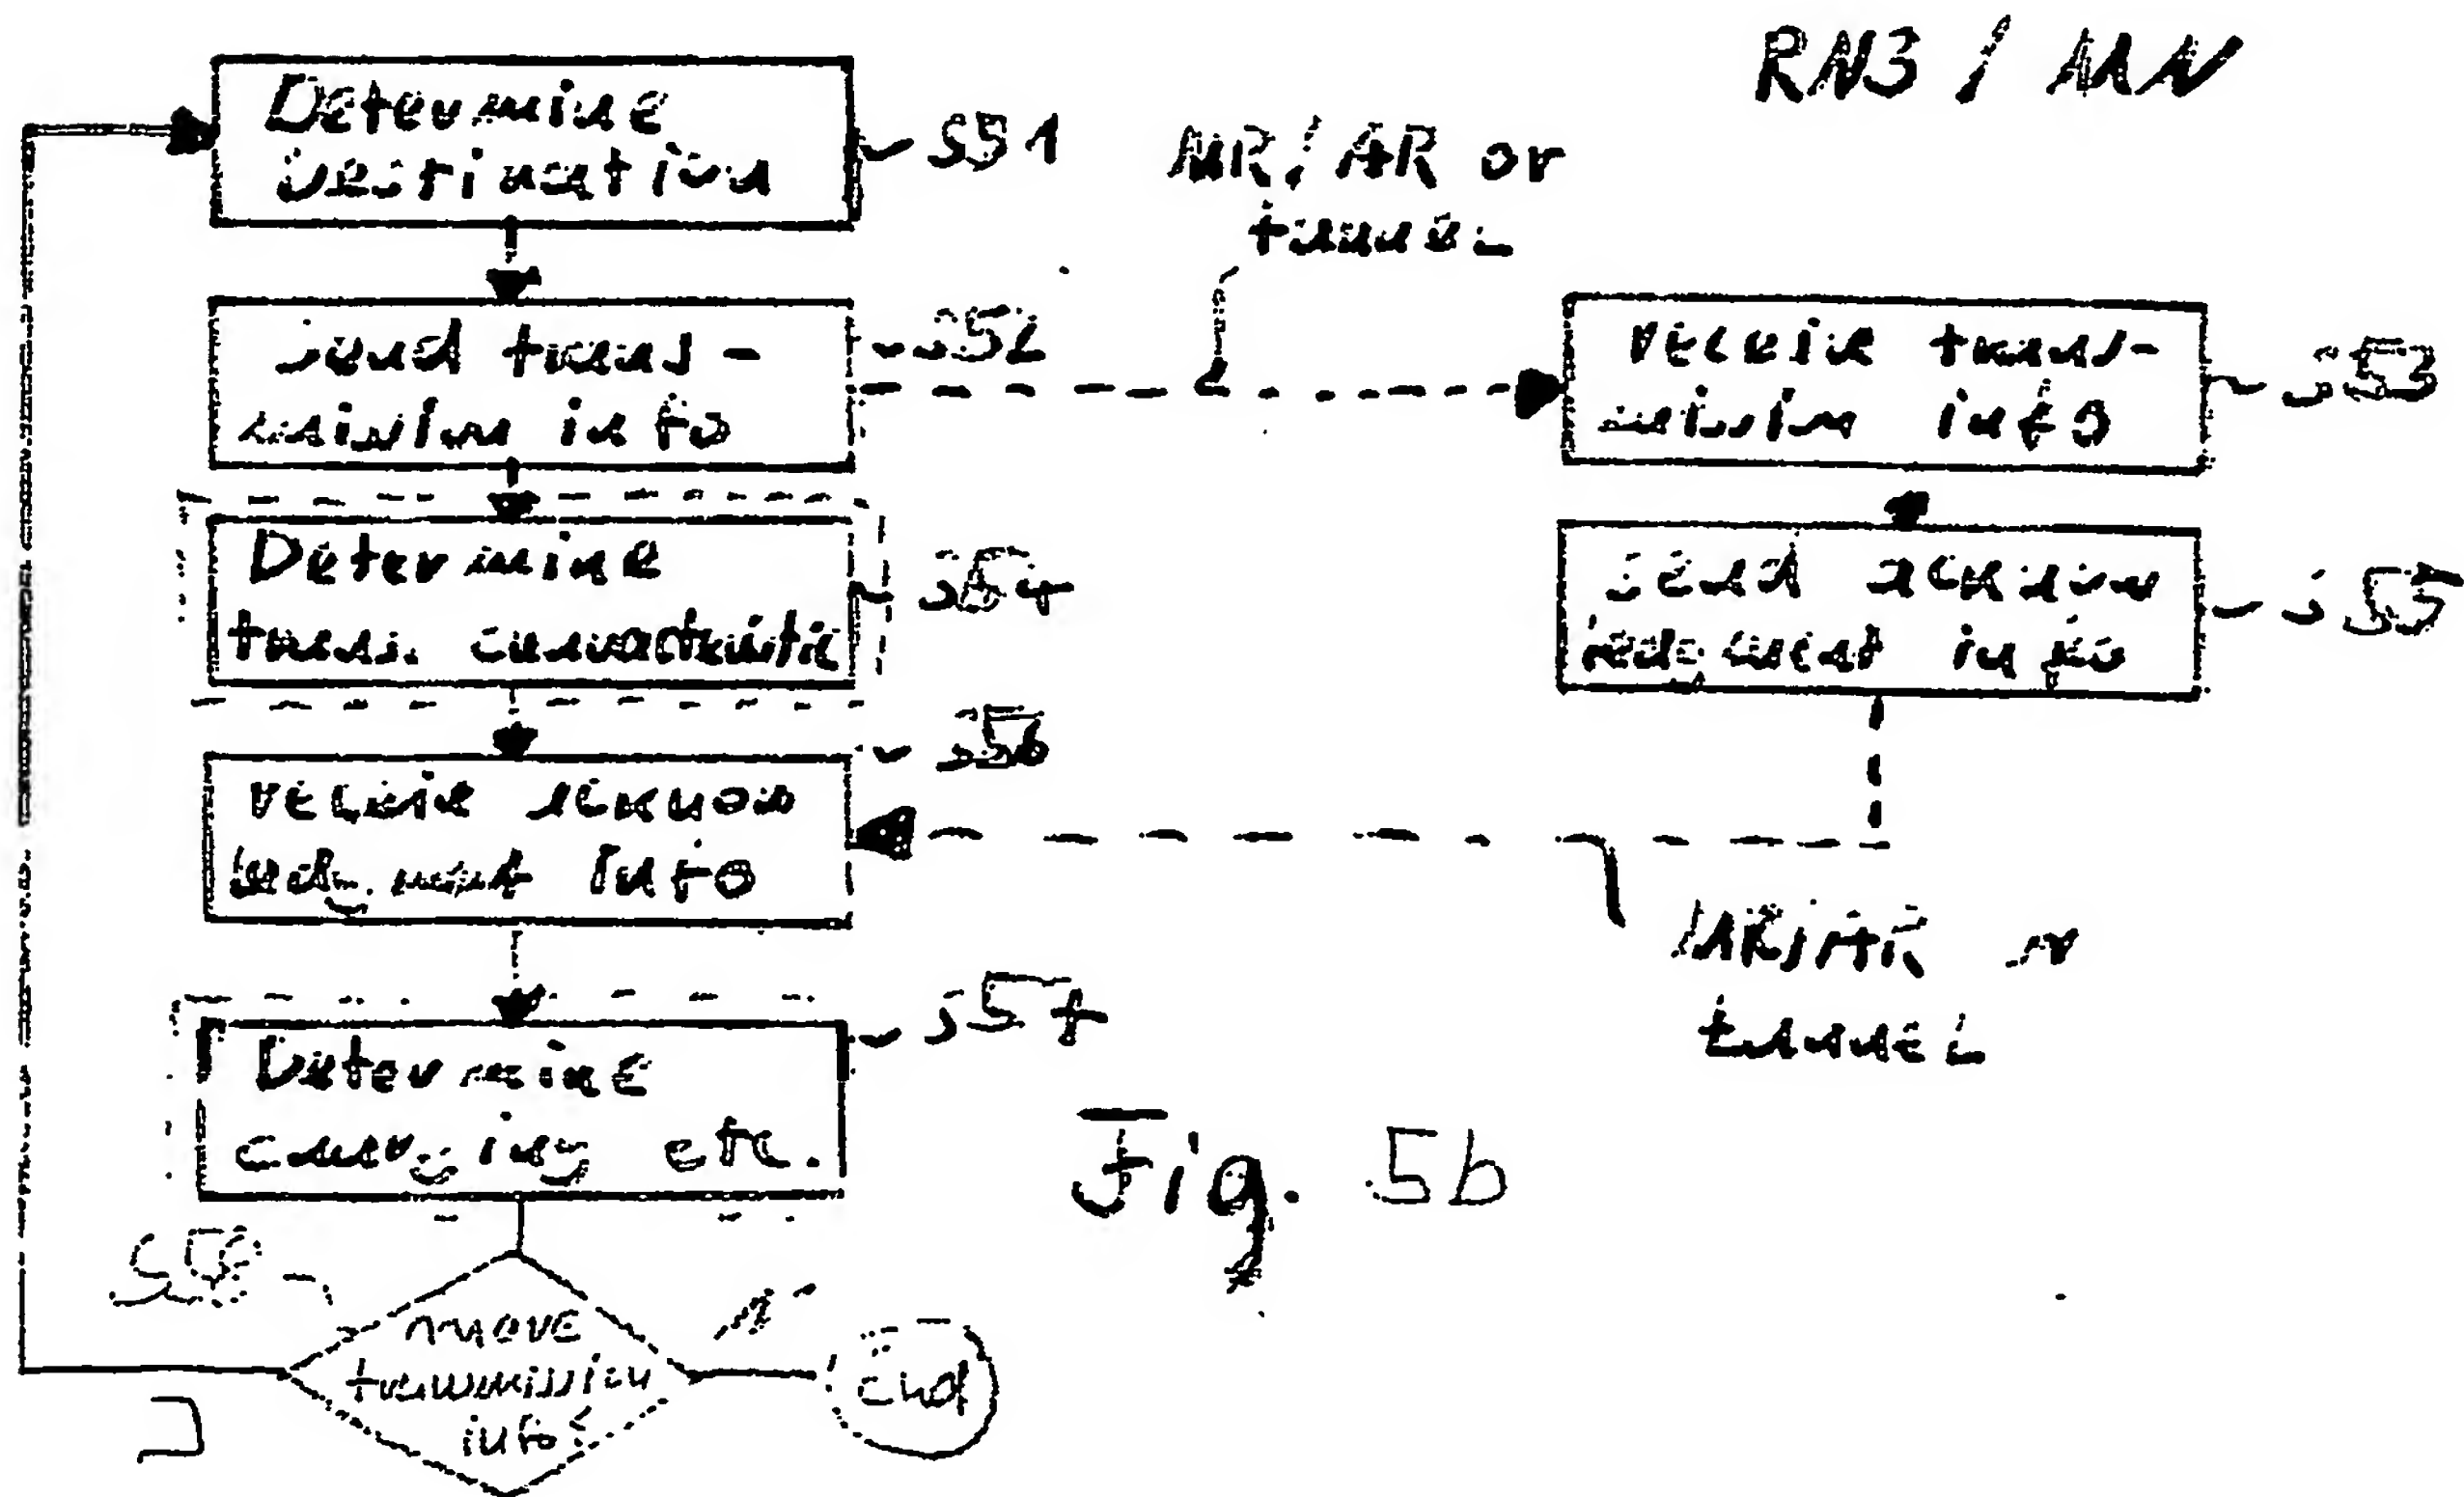 RN3 / MN
Determine
Destination
S51
MR/AR or
tunnel
Send trans-
mission info
S52
receive trans-
mission info
S53
Determine
trans. characteristic
S54
send acknow
ledgement info
S55
receive acknow
ledgement info
S56
MR/AR or
tunnel
Determine
charging etc.
S57
Fig. 5b
more
transmission
info?
End